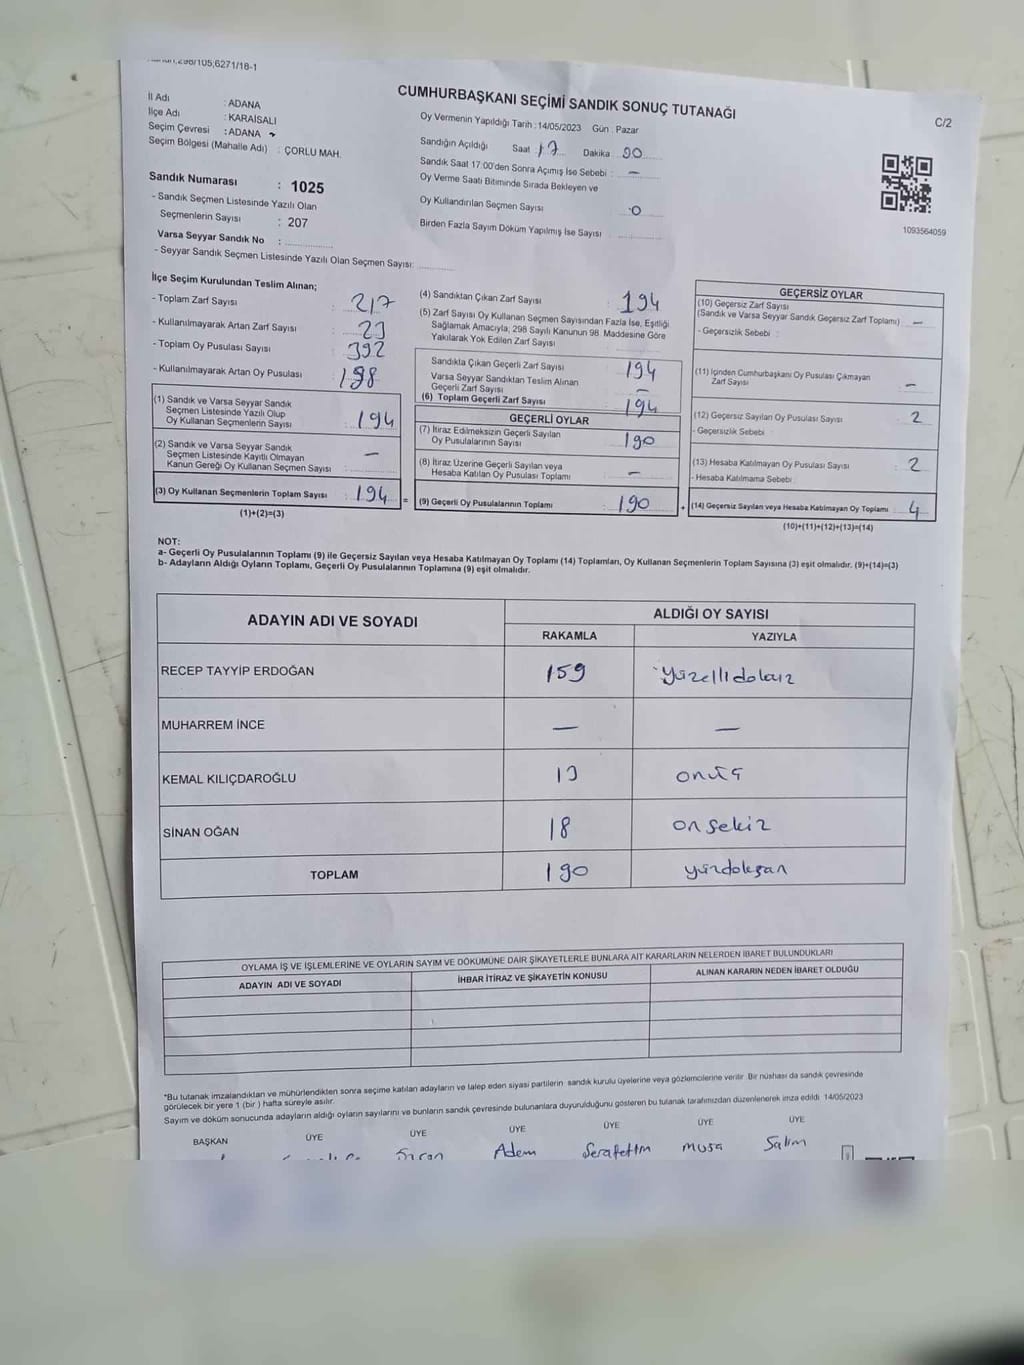 298/105;6271/18-1
CUMHURBAŞKANI SEÇİMİ SANDIK SONUÇ TUTANAĞI
C/2
İl Adı : ADANA
İlçe Adı : KARAİSALI
Seçim Çevresi : ADANA
Seçim Bölgesi (Mahalle Adı) : ÇORLU MAH.
Sandık Numarası : 1025
- Sandık Seçmen Listesinde Yazılı Olan
Seçmenlerin Sayısı : 207
Varsa Seyyar Sandık No :
- Seyyar Sandık Seçmen Listesinde Yazılı Olan Seçmen Sayısı:
Oy Vermenin Yapıldığı Tarih : 14/05/2023 Gün : Pazar
Sandığın Açıldığı Saat 17 Dakika
Sandık Saat 17:00'den Sonra Açımış İse Sebebi : —
Oy Verme Saati Bitiminde Sırada Bekleyen ve
Oy Kullandırılan Seçmen Sayısı 0
Birden Fazla Sayım Döküm Yapılmış İse Sayısı
1093564059
İlçe Seçim Kurulundan Teslim Alınan;
- Toplam Zarf Sayısı : 217
- Kullanılmayarak Artan Zarf Sayısı : 23
- Toplam Oy Pusulası Sayısı : 392
- Kullanılmayarak Artan Oy Pusulası : 198
(1) Sandık ve Varsa Seyyar Sandık
Seçmen Listesinde Yazılı Olup
Oy Kullanan Seçmenlerin Sayısı : 194
(2) Sandık ve Varsa Seyyar Sandık
Seçmen Listesinde Kayıtlı Olmayan
Kanun Gereği Oy Kullanan Seçmen Sayısı : —
(3) Oy Kullanan Seçmenlerin Toplam Sayısı : 194 =
(1)+(2)=(3)
(4) Sandıktan Çıkan Zarf Sayısı : 194
(5) Zarf Sayısı Oy Kullanan Seçmen Sayısından Fazla İse, Eşitliği
Sağlamak Amacıyla; 298 Sayılı Kanunun 98. Maddesine Göre
Yakılarak Yok Edilen Zarf Sayısı
Sandıkla Çıkan Geçerli Zarf Sayısı : 194
Varsa Seyyar Sandıktan Teslim Alınan
Geçerli Zarf Sayısı : —
(6) Toplam Geçerli Zarf Sayısı : 194
GEÇERLİ OYLAR
(7) İtiraz Edilmeksizin Geçerli Sayılan
Oy Pusulalarının Sayısı : 190
(8) İtiraz Üzerine Geçerli Sayılan veya
Hesaba Katılan Oy Pusulası Toplamı : —
(9) Geçerli Oy Pusulalarının Toplamı : 190 +
GEÇERSİZ OYLAR
(10) Geçersiz Zarf Sayısı
(Sandık ve Varsa Seyyar Sandık Geçersiz Zarf Toplamı) : —
- Geçersizlik Sebebi :
(11) İçinden Cumhurbaşkanı Oy Pusulası Çıkmayan
Zarf Sayısı —
(12) Geçersiz Sayılan Oy Pusulası Sayısı : 2
- Geçersizlik Sebebi :
(13) Hesaba Katılmayan Oy Pusulası Sayısı : 2
- Hesaba Katılmama Sebebi :
(14) Geçersiz Sayılan veya Hesaba Katılmayan Oy Toplamı : 4
(10)+(11)+(12)+(13)=(14)
NOT:
a- Geçerli Oy Pusulalarının Toplamı (9) ile Geçersiz Sayılan veya Hesaba Katılmayan Oy Toplamı (14) Toplamları, Oy Kullanan Seçmenlerin Toplam Sayısına (3) eşit olmalıdır. (9)+(14)=(3)
b- Adayların Aldığı Oyların Toplamı, Geçerli Oy Pusulalarının Toplamına (9) eşit olmalıdır.
ADAYIN ADI VE SOYADI ALDIĞI OY SAYISI
RAKAMLA YAZIYLA
RECEP TAYYİP ERDOĞAN 159 yüzellidokuz
MUHARREM İNCE — —
KEMAL KILIÇDAROĞLU 13 onüç
SİNAN OĞAN 18 onsekiz
TOPLAM 190 yüzdoksan
OYLAMA İŞ VE İŞLEMLERİNE VE OYLARIN SAYIM VE DÖKÜMÜNE DAİR ŞİKAYETLERLE BUNLARA AİT KARARLARIN NELERDEN İBARET BULUNDUKLARI
ADAYIN ADI VE SOYADI İHBAR İTİRAZ VE ŞİKAYETİN KONUSU ALINAN KARARIN NEDEN İBARET OLDUĞU
*Bu tutanak imzalandıktan ve mühürlendikten sonra seçime katılan adayların ve talep eden siyasi partilerin sandık kurulu üyelerine veya gözlemcilerine verilir. Bir nüshası da sandık çevresinde
görülecek bir yere 1 (bir ) hafta süreyle asılır.
Sayım ve döküm sonucunda adayların aldığı oyların sayılarını ve bunların sandık çevresinde bulunanlara duyurulduğunu gösteren bu tutanak tarafımızdan düzenlenerek imza edildi. 14/05/2023
BAŞKAN ÜYE ÜYE ÜYE ÜYE ÜYE ÜYE
Adem Serafettin Musa Salim